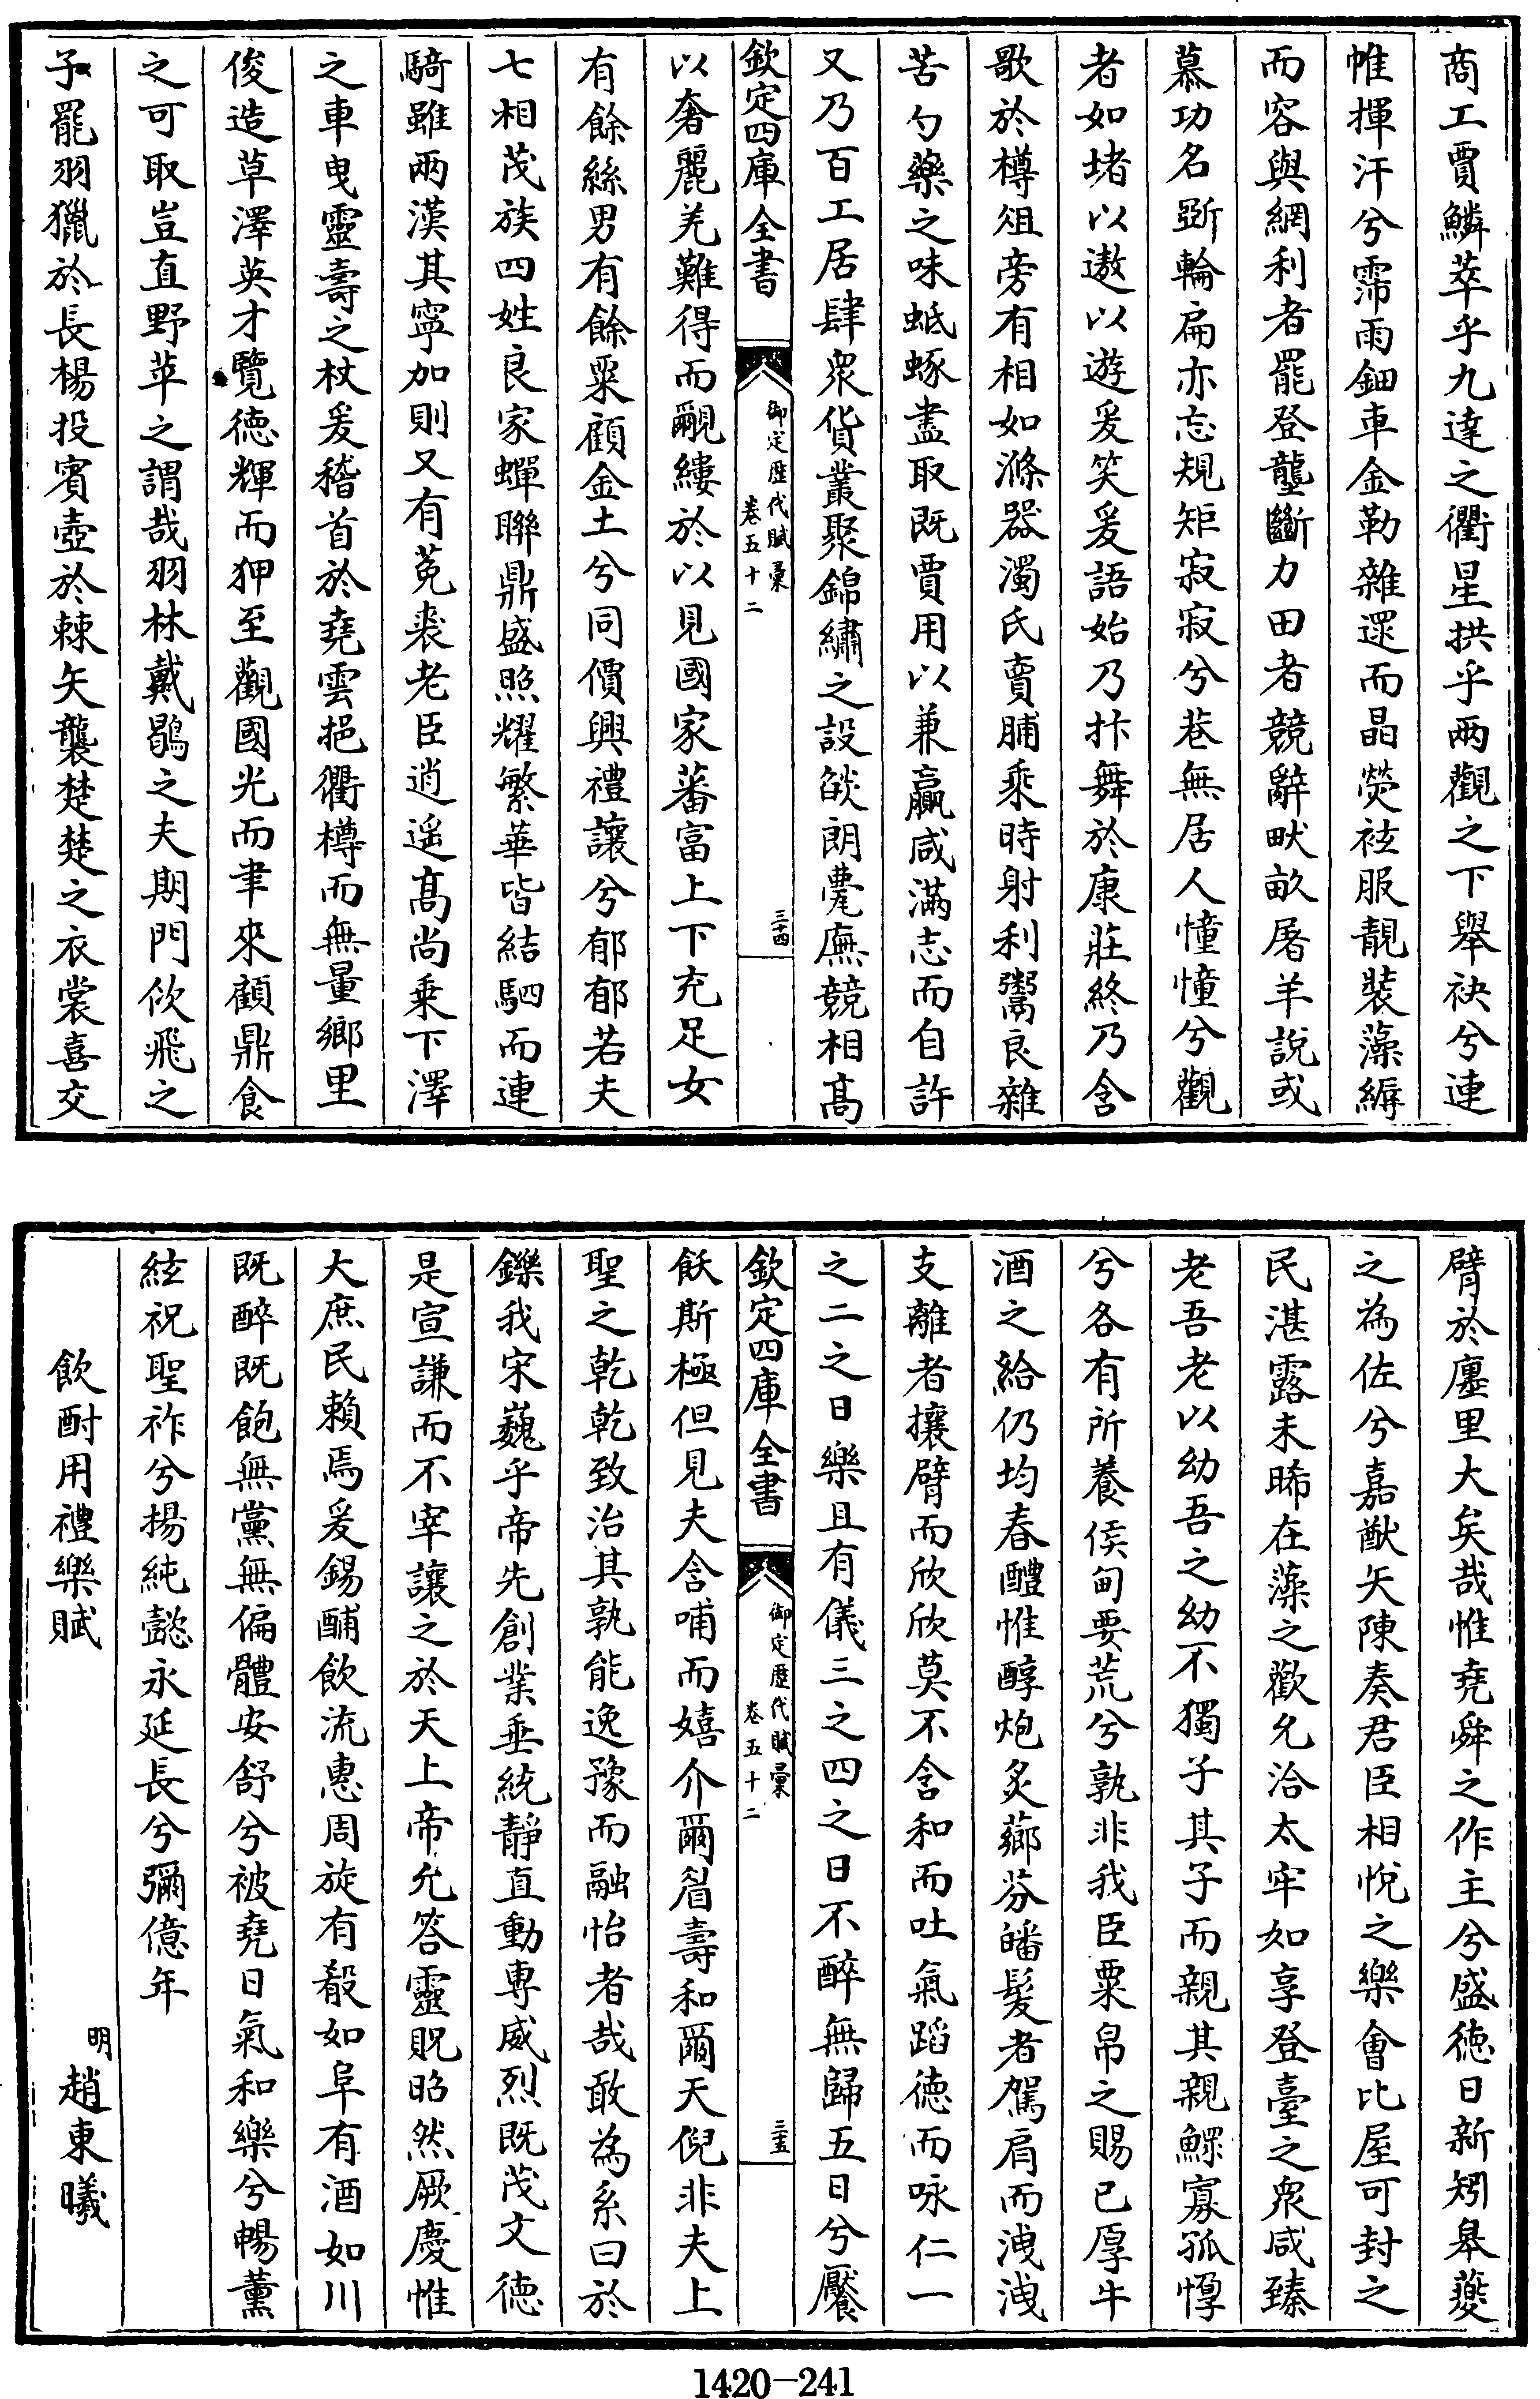 商工賈鱗萃乎九達之衢星拱乎兩觀之下舉袂兮連
帷揮汗兮霈雨鈿車金勒雜遝而晶熒袨服靚裝藻縟
而容與網利者罷登壟斷力田者競辭畎畝屠羊說或
慕功名斲輪扁亦忘規矩寂寂兮巷無居人憧憧兮觀
者如堵以遨以遊爰笑爰語始乃抃舞於康莊終乃含
歌於樽俎旁有相如滌器濁氏賣脯乘時射利鬻良雜
苦勺藥之味蚳蝝盡取既賈用以兼贏咸滿志而自許
又乃百工居肆眾貨叢聚錦繡之設燄朗甍廡競相高
欽定四庫全書
御定歷代賦彙
卷五十二
三十四
以奢麗羌難得而覼縷於以見國家蕃富上下充足女
有餘絲男有餘粟顧金土兮同價興禮讓兮郁郁若夫
七相茂族四姓良家蟬聯鼎盛照耀繁華皆結駟而連
騎雖兩漢其寧加則又有菟裘老臣逍遥高尚乗下澤
之車曳靈壽之杖爰稽首於堯雲挹衢樽而無量鄉里
俊造草澤英才覽德輝而狎至觀國光而聿來顧鼎食
之可取豈直野苹之謂哉羽林戴鶡之夫期門佽飛之
子罷羽獵於長楊投賓壺於棘矢襲楚楚之衣裳喜交
臂於廛里大矣哉惟堯舜之作主兮盛德日新矧皋夔
之為佐兮嘉猷矢陳奏君臣相悅之樂會比屋可封之
民湛露未晞在藻之歡允洽太牢如享登臺之眾咸臻
老吾老以幼吾之幼不獨子其子而親其親鰥寡孤惸
兮各有所養侯甸要荒兮孰非我臣粟帛之賜已厚牛
酒之給仍均春醴惟醇炮炙薌芬皤髮者駕肩而洩洩
支離者攘臂而欣欣莫不含和而吐氣蹈德而咏仁一
之二之日樂且有儀三之四之日不醉無歸五日兮饜
欽定四庫全書
御定歷代賦彙
卷五十二
三十五
飫斯極但見夫含哺而嬉介爾眉壽和爾天倪非夫上
聖之乾乾致治其孰能逸豫而融怡者哉敢為系曰於
鑠我宋巍乎帝先創業垂統靜直動專威烈既茂文德
是宣謙而不宰讓之於天上帝允答靈貺昭然厥慶惟
大庶民賴焉爰錫酺飲流惠周旋有殽如阜有酒如川
既醉既飽無黨無偏體安舒兮被堯日氣和樂兮暢薰
絃祝聖祚兮揚純懿永延長兮彌億年
飲酎用禮樂賦
明
趙東曦
1420-241